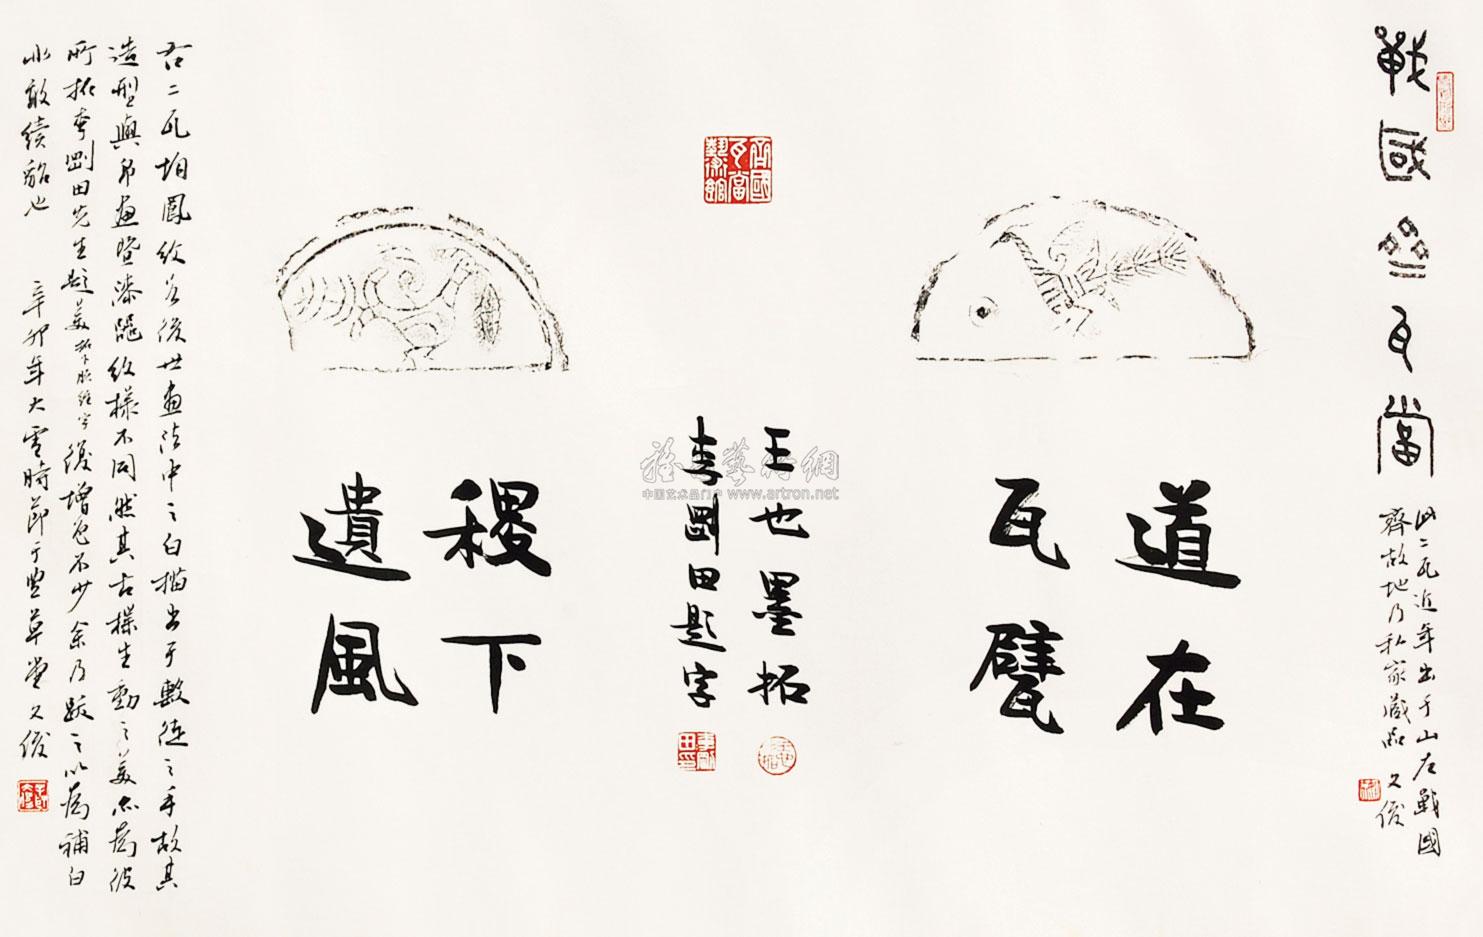 戰國齊瓦當
此二瓦近年出于山左戰國
齊故地乃私家藏品 文俊
道在
瓦甓
齊國
瓦當
藝術館
王也墨拓
李剛田題字
稷下
遺風
右二瓦均鳳紋若後世畫法中之白描出于數徒之手故其
造型與帛畫暨漆器紋樣不同然其古樸生動之美亦為彼
所 李剛田先生題 後增色不少余乃跋之以為補白
亦敢續貂也 辛卯年大雪時節于豐草堂文俊
中国艺术品门户 www.artron.net